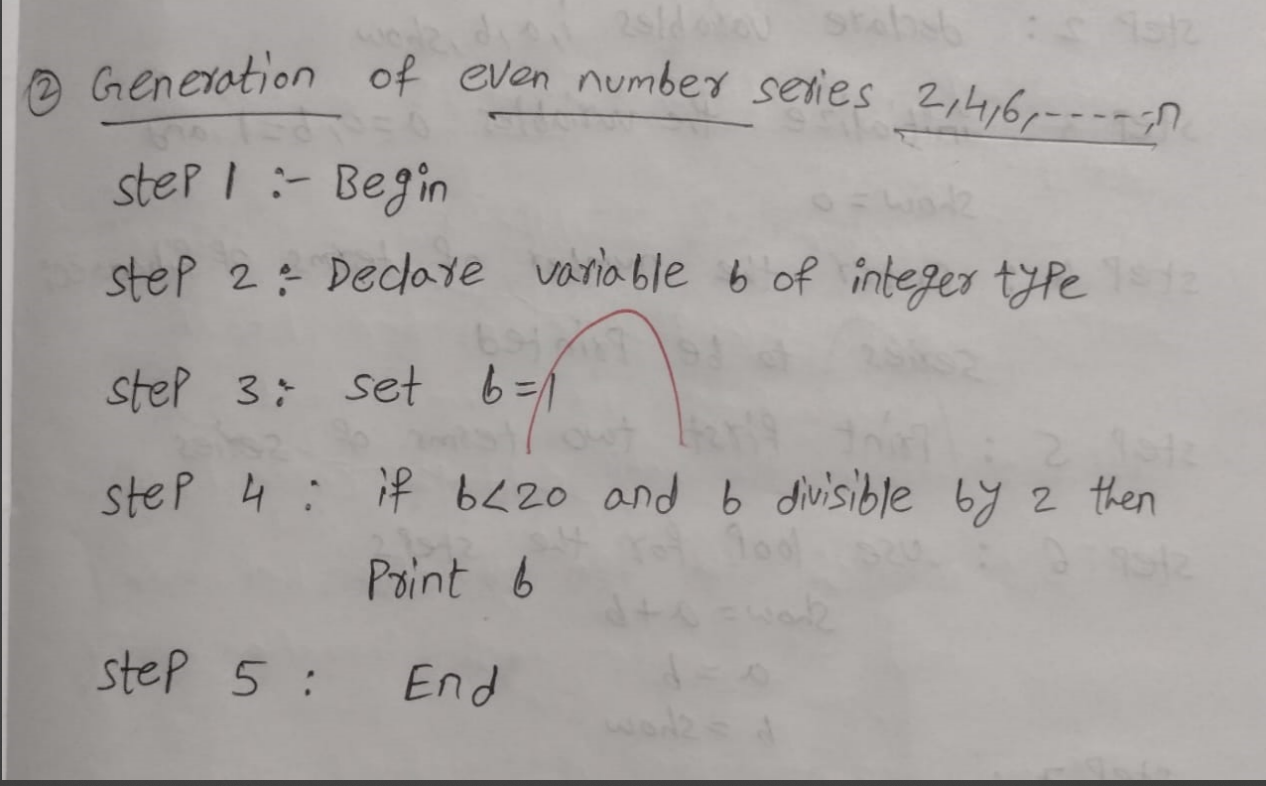 ② Generation of even number series 2,4,6,-----,n
step 1 :- Begin
step 2 :- Declare variable b of integer type
step 3 :- set b=1
step 4 : if b<20 and b divisible by 2 then
Print b
step 5 : End